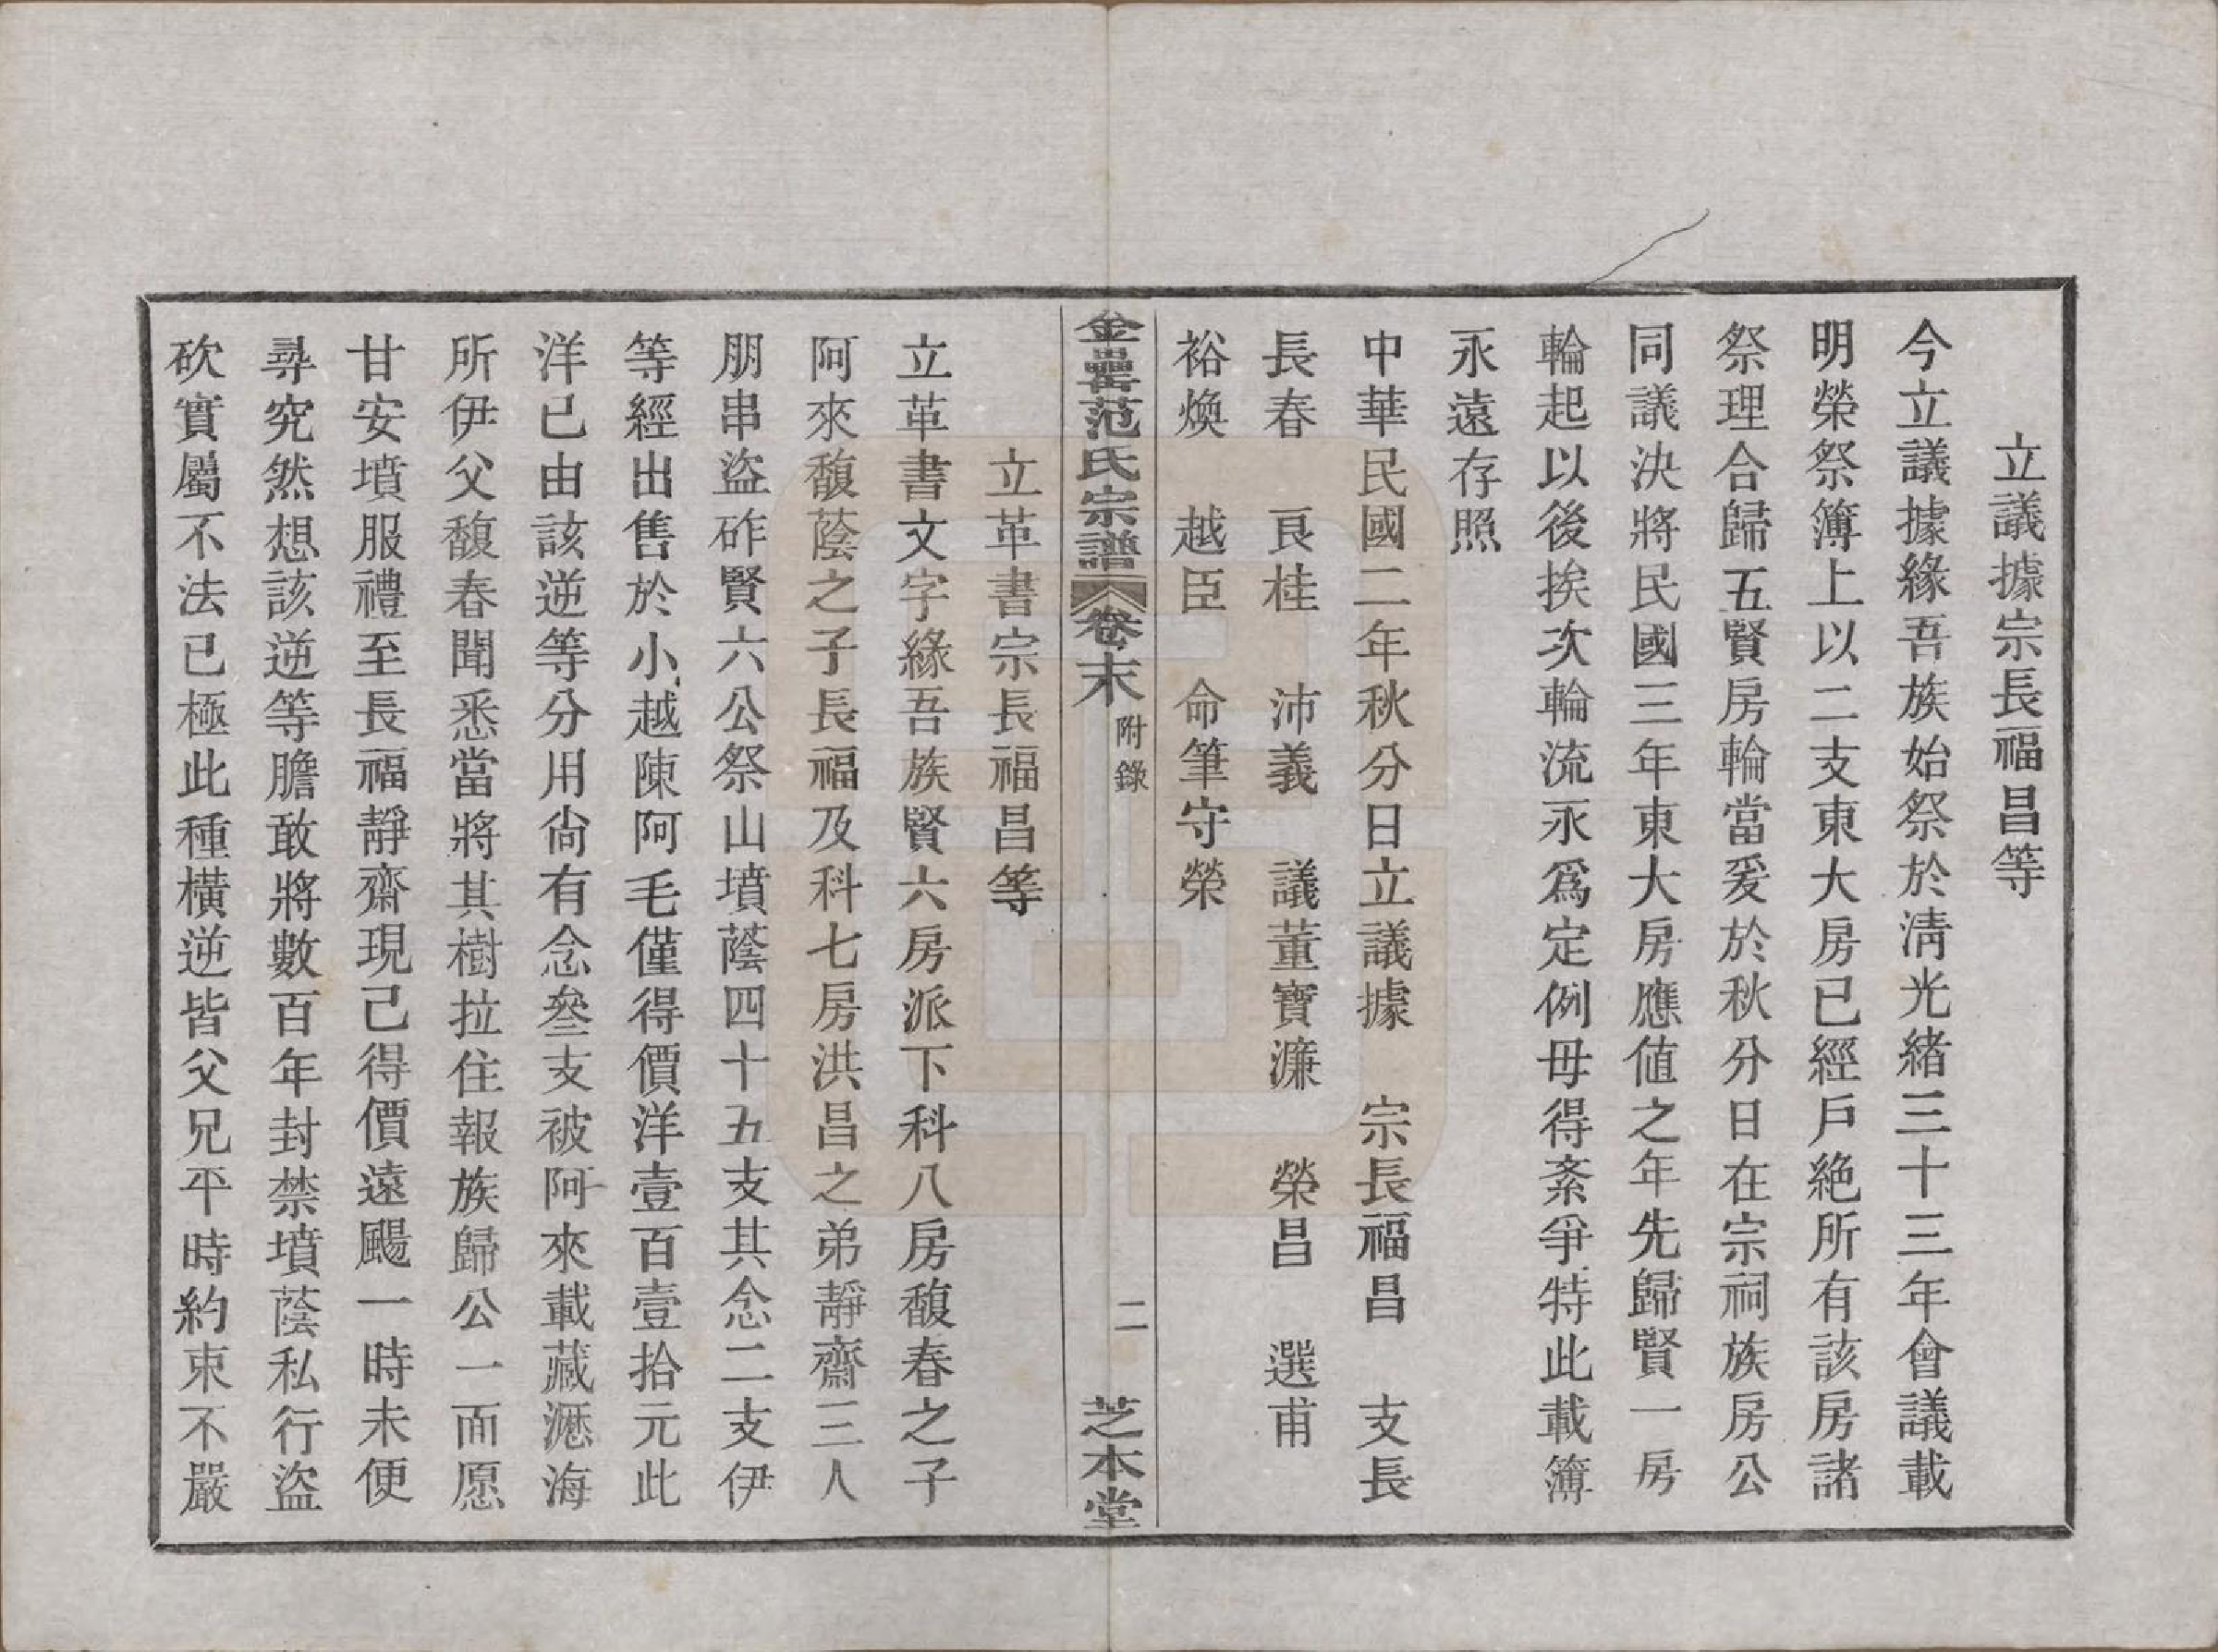 立議據宗長福昌等
今立議據緣吾族始祭於淸光緒三十三年會議載
明榮祭簿上以二支東大房已經戶絶所有該房諸
祭理合歸五賢房輪當爰於秋分日在宗祠族房公
同議決將民國三年東大房應値之年先歸賢一房
輪起以後挨次輪流永爲定例毋得紊爭特此載簿
永遠存照
中華民國二年秋分日立議據　宗長福昌　支長
長春　良桂　沛義　議董寶濂　榮昌　選甫
裕煥　越臣　命筆守榮
金罍范氏宗譜　卷末　附錄　二　芝本堂
立革書宗長福昌等
立革書文字緣吾族賢六房派下科八房馥春之子
阿來馥蔭之子長福及科七房洪昌之弟靜齋三人
朋串盜砟賢六公祭山墳蔭四十五支其念二支伊
等經出售於小越陳阿毛僅得價洋壹百壹拾元此
洋已由該逆等分用尙有念叄支被阿來載藏瀝海
所伊父馥春聞悉當將其樹拉住報族歸公一面愿
甘安墳服禮至長福靜齋現已得價遠颺一時未便
尋究然想該逆等膽敢將數百年封禁墳蔭私行盜
砍實屬不法已極此種橫逆皆父兄平時約束不嚴